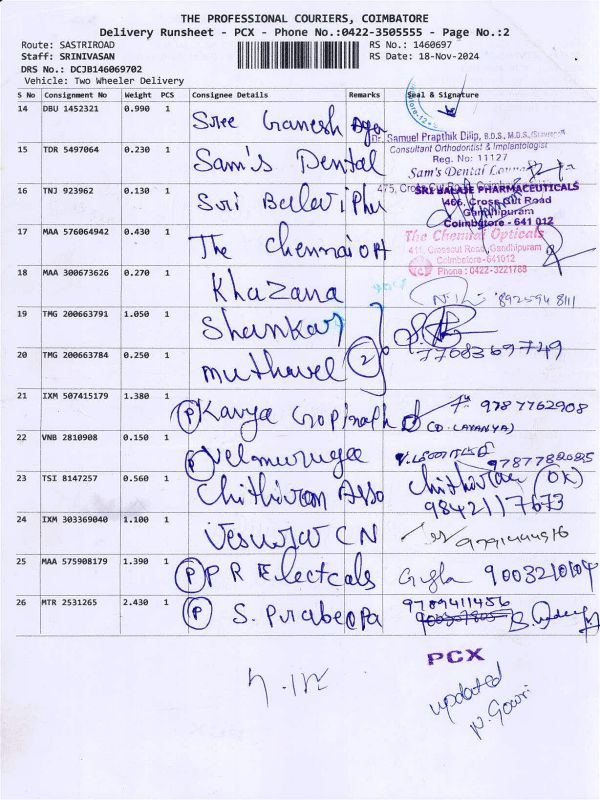 THE PROFESSIONAL COURIERS, COIMBATORE
Delivery Runsheet - PCX - Phone No.:0422-3505555 - Page No.:2
Route: SASTRIROAD RS No.: 1460697
Staff: SRINIVASAN RS Date: 18-Nov-2024
DRS No.: DCJB146069702
Vehicle: Two Wheeler Delivery
S No Consignment No Weight PCS Consignee Details Remarks Seal & Signature
14 DBU 1452321 0.990 1 Sree Ganesh
Dr. Samuel Prapthik Dilip, B.D.S., M.D.S.,
Consultant Orthodontist & Implantologist
Reg. No: 11127
15 TDR 5497064 0.230 1 Sam's Dental Sam's Dental
475, Cross Cut Road
16 TNJ 923962 0.130 1 Sri Balaji Phar SRI BALAJI PHARMACEUTICALS
466, Cross Cut Road
Gandhipuram
Coimbatore - 641 012
17 MAA 576064942 0.430 1 The Chennai opt The Chennai Opticals
411, Crosscut Road, Gandhipuram
Coimbatore-641012
Phone : 0422-3221788
18 MAA 300673626 0.270 1 Khazana
19 TMG 200663791 1.050 1 Shankar
20 TMG 200663784 0.250 1 muthuvel 2 7708369749
21 IXM 507415179 1.380 1 P Kavya Gopinath 9787762908
(D. LAVANYA)
22 VNB 2810908 0.150 1 P Velmurugan
23 TSI 8147257 0.560 1 Chithiram Asso (OK)
9842117673
24 IXM 303369040 1.100 1 CN
25 MAA 575908179 1.390 1 P P R Electcals 9003210104
26 MTR 2531265 2.430 1 P S. Prabeepa 9789411456
PCX
updated
N. Gowri